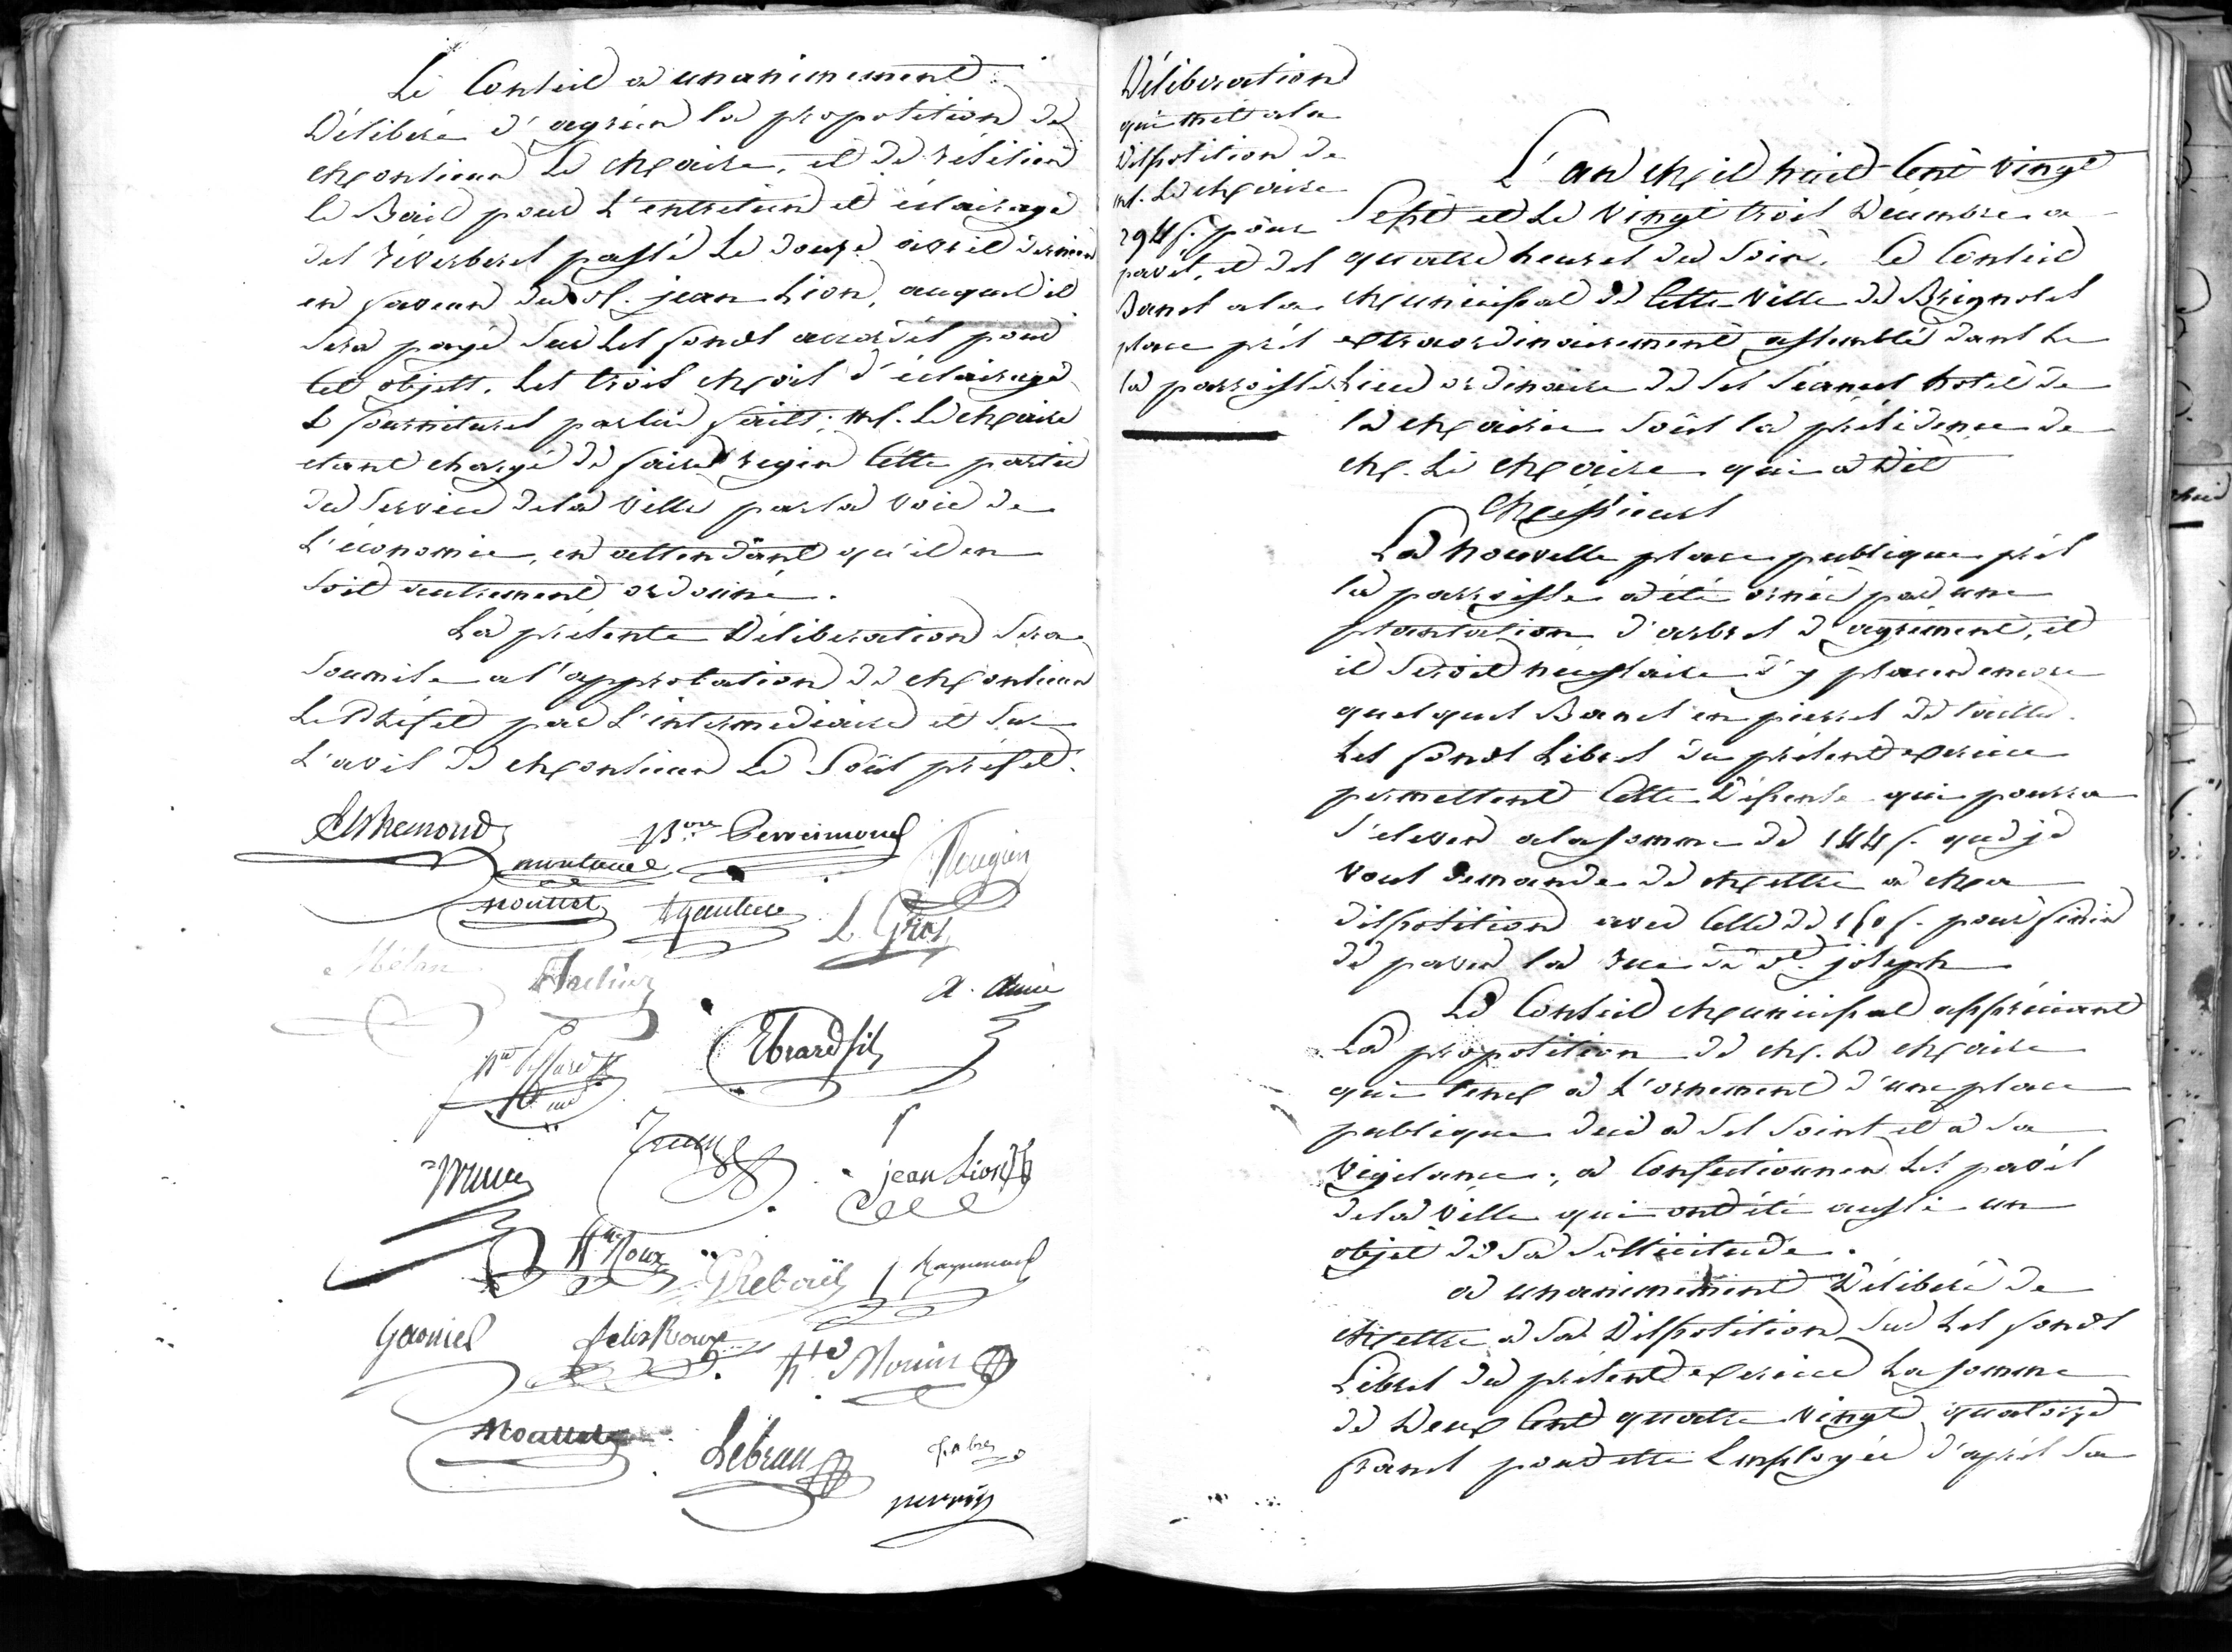 Le Conseil a unanimement
Délibéré d'agréer la proposition de
Monsieur Le Maire, et de résilier
le Bail pour l'entretien et éclairage
des Réverberes passé le douze avril dernier
en faveur du Sr. jean Lion, auquel il
sera payé sur les fonds accordés pour
cet objet, les trois mois d'éclairage
& fournitures par lui faits; M. Le Maire
etant chargé de faire regir cette partie
du service de la Ville par la voie de
l'économie, en attendant qu'il en
soit autrement ordonné.
La présente Délibération sera
soumise a l'approbation de Monsieur
Le Préfet par l'intermediaire et sur
l'avis de Monsieur Le Sous préfet.
mouttet
L. Gros
Ebrard fils
jean Lion
Roux
Garniel
felix Roux
Mouttet
Lebrun
Délibération
qui met a la
disposition de
M. Le Maire
294 f. pour
pavés, et des
Bancs a la
place près
la parroisse
L'an Mil huit Cent vingt
Sept et le vingt trois Décembre a
quatre heures du soir. Le Conseil
Municipal de cette Ville de Brignoles
extraordinairement assemblé dans le
lieu ordinaire de ses séances hotel de
la Mairie sous la présidence de
M. Le Maire qui a dit
Messieurs
La nouvelle place publique près
la parroisse a été ornée par une
plantation d'arbres d'agrément, et
il seroit nécessaire d'y placer encore
quelques Bancs en pierres de taille.
Les fonds libres du présent exercice
permettent cette Dépense qui pourra
s'elever a la somme de 144 f. que je
vous demande de Mettre a Ma
disposition avec celle de 150 f. pour finir
de paver la rue de St. joseph
Le Conseil Municipal appréciant
La proposition de M. Le Maire
qui tend a l'ornement d'une place
publique due a ses soins et a sa
vigilance; a confectionner les pavés
de la Ville qui ont été aussi un
objet de sa sollicitude.
a unanimement Délibéré de
Mettre a sa Disposition sur les fonds
Libres du présent exercice la somme
de Deux Cent quatre vingt quatorze
francs pour etre Employée d'après sa